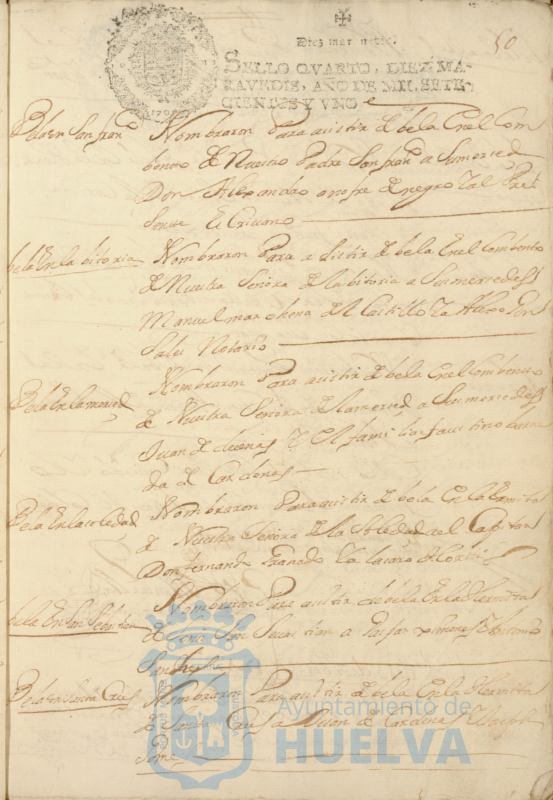 50
Diez maravedis.
SELLO QVARTO, DIEZ MA-
RAVEDIS, AÑO DE MIL SETE-
CIENTOS Y VNO
Bela en San fran.co
Nombraron Para asistir de bela En el Com
bento de Nuestro Padre San fran.co a Sumerced
Don Alexandro de negro y al Pre
sente Escrivano
bela En la bitoria
Nombraron Para asistir de bela En el Combento
de Nuestra Señora de la bitoria a Susmercedes
Manuel marchena del Castillo
Notario
Bela En la merced
Nombraron Para asistir de bela En el Combento
de Nuestra Señora de la merced a Susmercedes
Juan de y el familiar faustino
de Cardenas
Bela En la soledad
Nombraron Para asistir de bela En la Ermita
de Nuestra Señora de la Soledad a el Capitan
Don fernando
bela En San Sebastian
Nombraron Para asistir de bela En la Hermita
de San Sebastian a
Sanches
Bela En Santa Cruz
Nombraron Para asistir de bela En la Hermita
de Santa Cruz a Juan de Cardenas
Ayuntamiento de
HUELVA